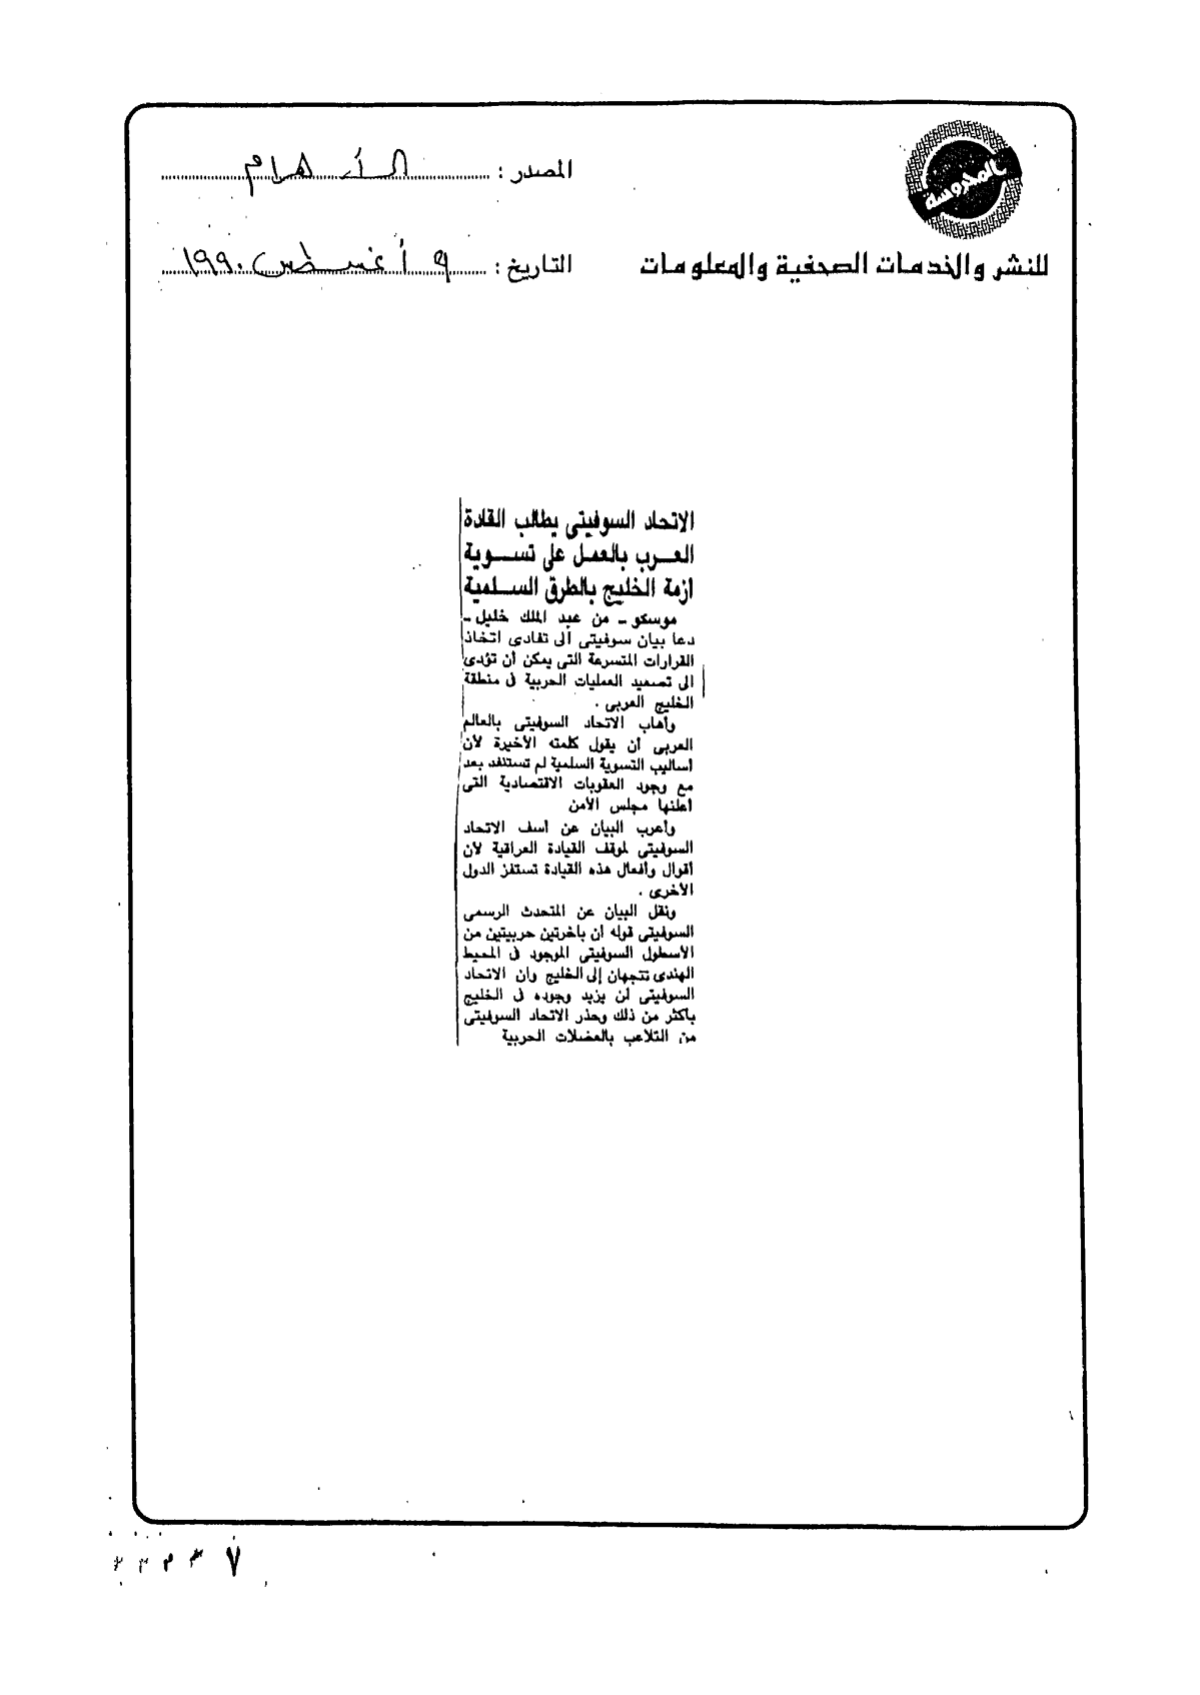 المحروسة
المصدر : الأهرام
للنشر والخدمات الصحفية والمعلومات
التاريخ : ٩ أغسطس ١٩٩٠
الاتحاد السوفيتى يطالب القادة
العرب بالعمل على تسوية
ازمة الخليج بالطرق السلمية
موسكو ـ من عبد الملك خليل ـ
دعا بيان سوفيتى الى تفادى اتخاذ
القرارات المتسرعة التى يمكن أن تؤدى
الى تصعيد العمليات الحربية فى منطقة
الخليج العربى .
وأهاب الاتحاد السوفيتى بالعالم
العربى أن يقول كلمته الأخيرة لأن
أساليب التسوية السلمية لم تستنفد بعد
مع وجود العقوبات الاقتصادية التى
أعلنها مجلس الأمن
وأعرب البيان عن أسف الاتحاد
السوفيتى لموقف القيادة العراقية لأن
أقوال وأفعال هذه القيادة تستفز الدول
الأخرى .
ونقل البيان عن المتحدث الرسمى
السوفيتى قوله ان باخرتين حربيتين من
الأسطول السوفيتى الموجود فى المحيط
الهندى تتجهان إلى الخليج وأن الاتحاد
السوفيتى لن يزيد وجوده فى الخليج
بأكثر من ذلك وحذر الاتحاد السوفيتى
من التلاعب بالعضلات الحربية
٧